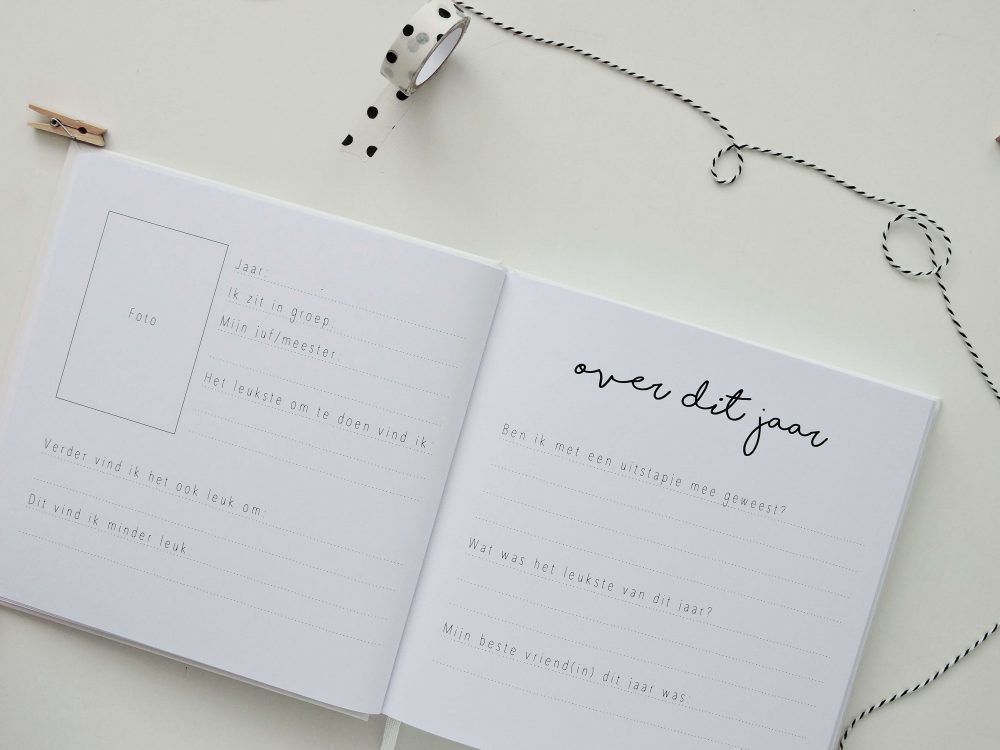 Foto
Jaar:
Ik zit in groep
Mijn juf/meester:
Het leukste om te doen vind ik:
Verder vind ik het ook leuk om:
Dit vind ik minder leuk
over dit jaar
Ben ik met een uitstapje mee geweest?
Wat was het leukste van dit jaar?
Mijn beste vriend(in) dit jaar was: